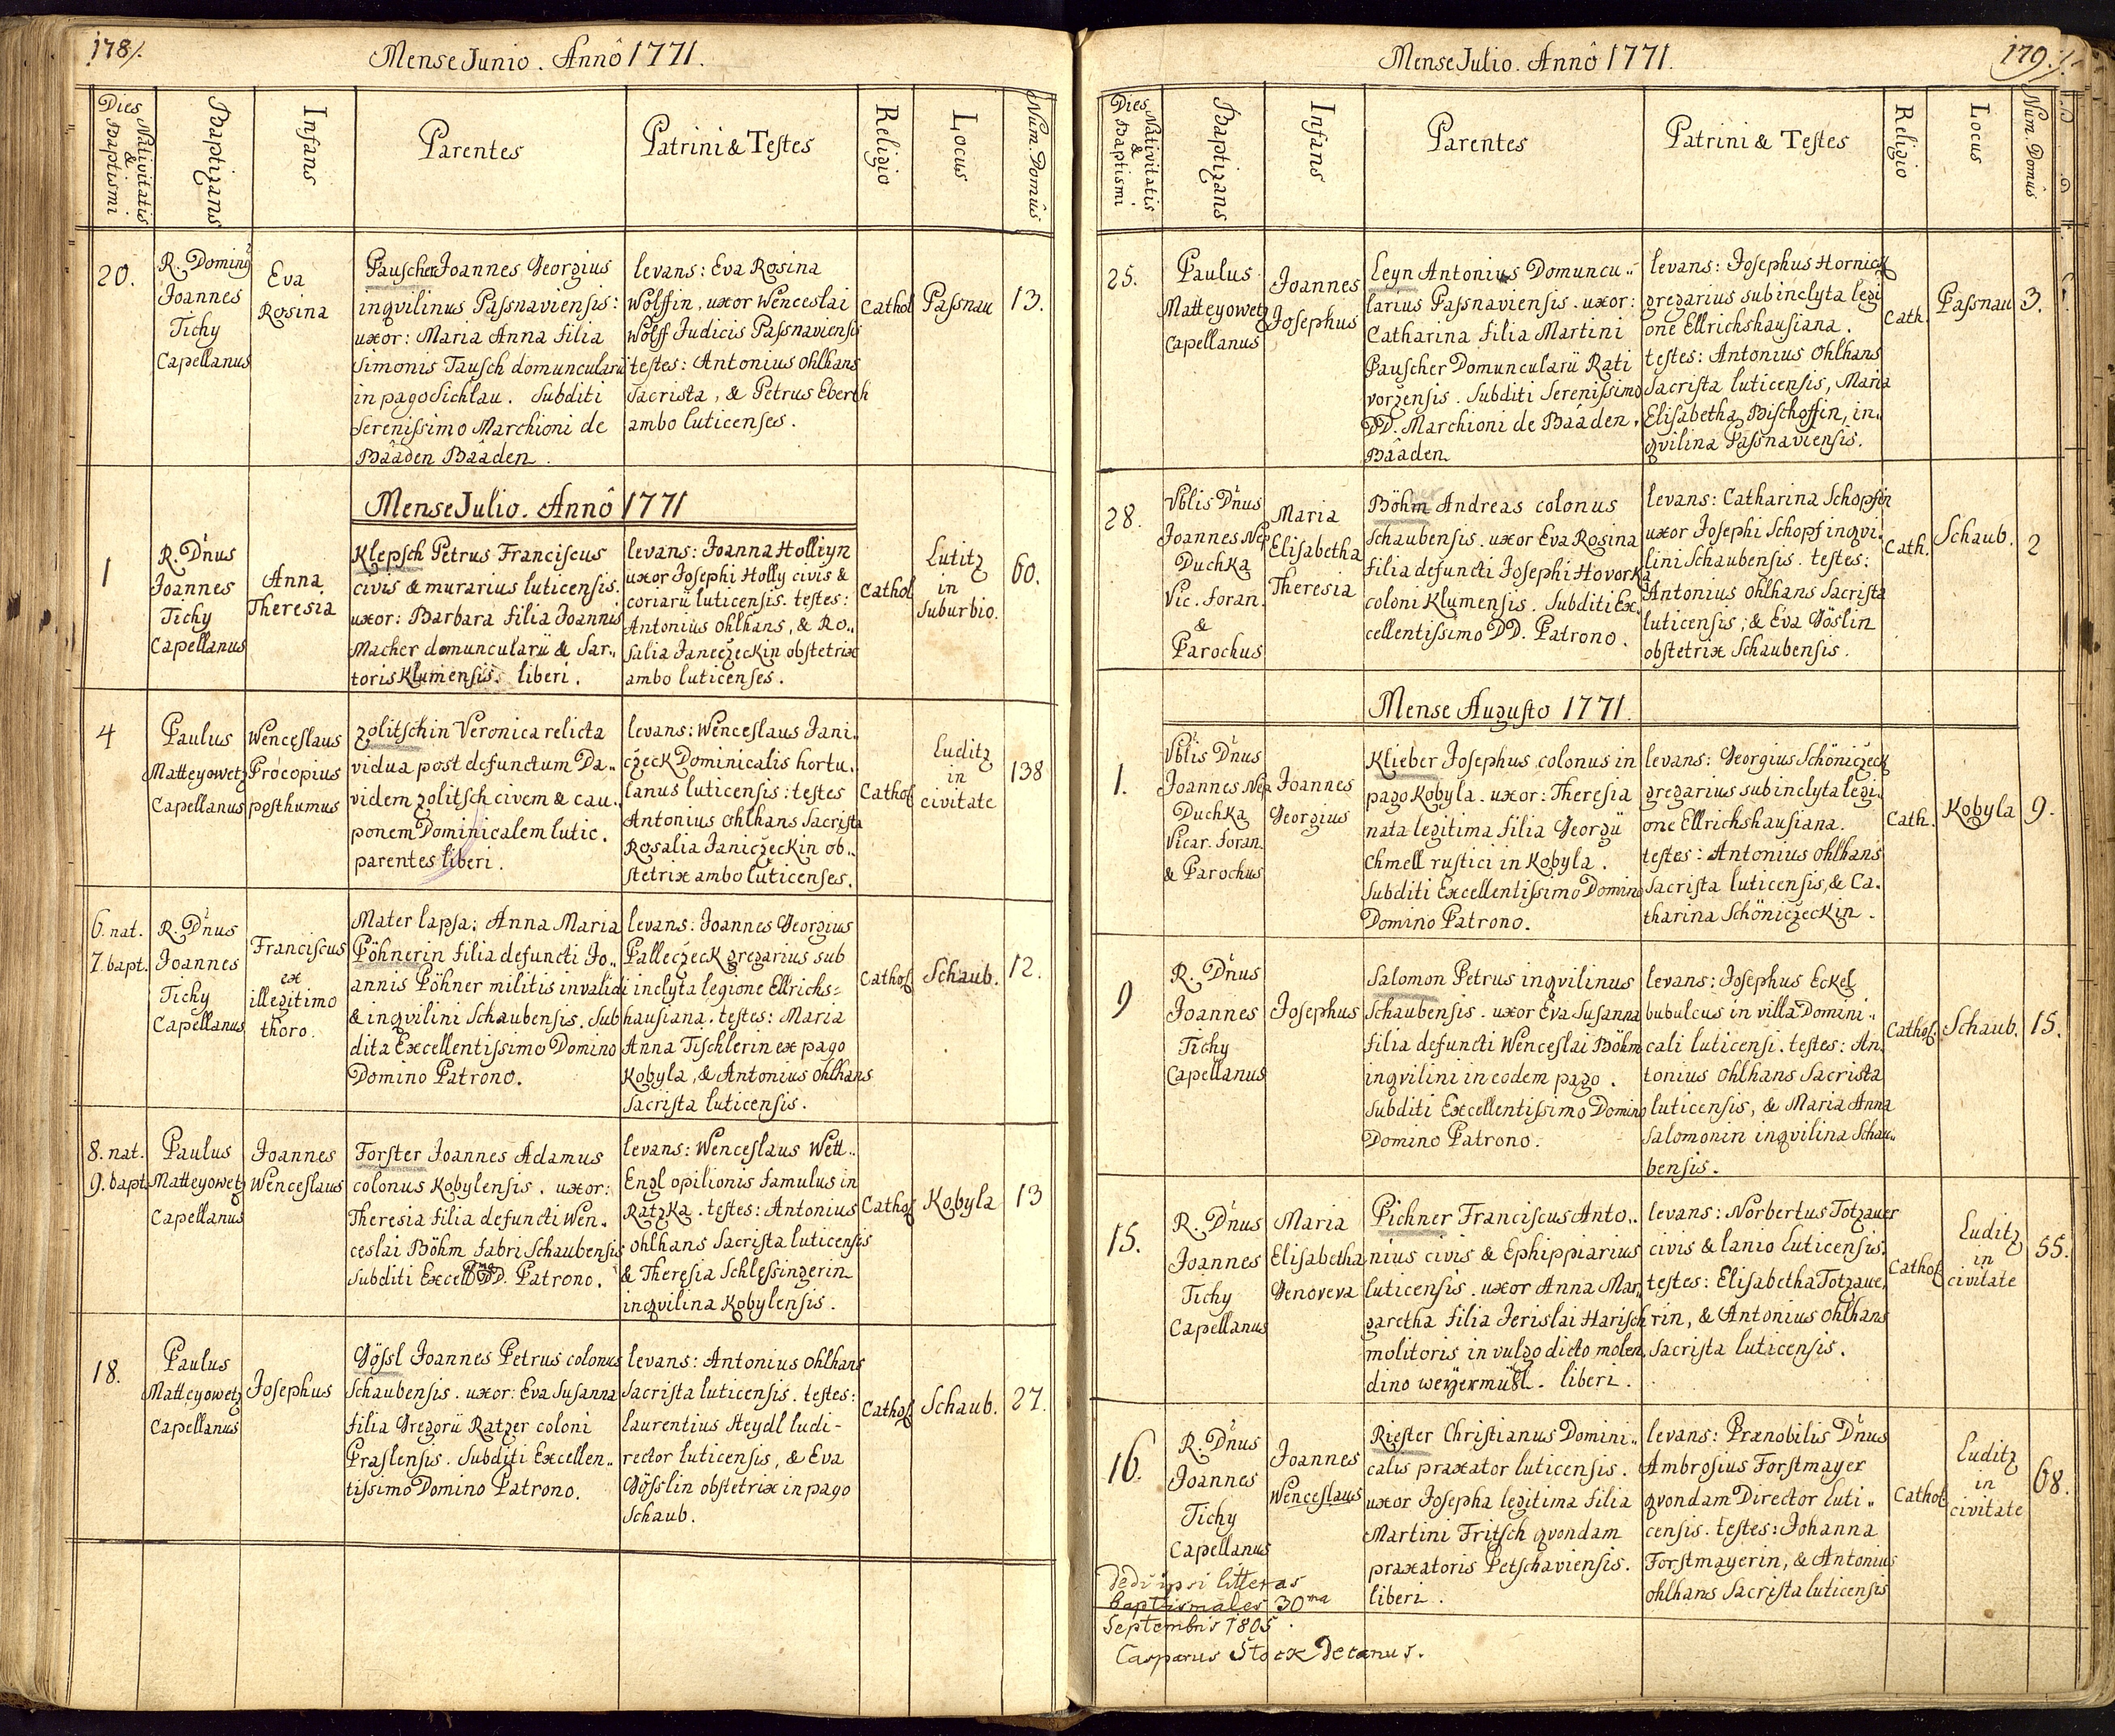 178/.
Mense Junio. Annô 1771.
Dies Nativitatis & Baptismi
Baptizans
Infans
Parentes
Patrini & Testes
Religio
Locus
Num. Domûs
20.
R. Dominus
Joannes
Tichy
Capellanus
Eva
Rosina
Pauscher Joannes Georgius
inqvilinus Passnaviensis:
uxor: Maria Anna filia
Simonis Tausch domuncularii
in pago Sichlau. Subditi
Serenissimo Marchioni de
Bâaden Bâaden.
levans: Eva Rosina
Wolffin, uxor Wenceslai
Wolff Judicis Passnaviensis
testes: Antonius Ohlhans
Sacrista, & Petrus Eberth
ambo luticenses.
Cathol
Passnau
13.
Mense Julio. Annô 1771
1
R. D'nus
Joannes
Tichy
Capellanus
Anna
Theresia
Klepsch Petrus Franciscus
civis & murarius luticensis.
uxor: Barbara filia Joannis
Macher domuncularii & Sar..
toris Klumensis. liberi.
levans: Joanna Hollyn
uxor Josephi Holly civis &
coriarii luticensis. testes:
Antonius Ohlhans, & Ro..
salia Janeczeckin obstetrix
ambo luticenses.
Cathol
Lutitz
in
suburbio.
60.
4
Paulus
Matteyowetz
Capellanus
Wenceslaus
Procopius
posthumus
Zolitschin Veronica relicta
vidua post defunctum Da..
videm Zolitsch civem & cau..
ponem Dominicalem lutic.
parentes liberi.
levans: Wenceslaus Jani..
czeck Dominicalis hortu..
lanus luticensis: testes
Antonius Ohlhans Sacrista
Rosalia Janiczeckin ob..
stetrix ambo luticenses.
Cathol
Luditz
in
civitate
138
6. nat.
7. bapt.
R. D'nus
Joannes
Tichy
Capellanus
Franciscus
ex
illegitimo
thoro.
Mater lapsa: Anna Maria
Pöhnerin filia defuncti Jo..
annis Pöhner militis invalidi
& inqvilini Schaubensis. Sub
dita Excellentissimo Domino
Domino Patrono.
levans: Joannes Georgius
Palleczeck gregarius sub
inclyta legione Ellrichs=
hausiana. testes: Maria
Anna Tischlerin ex pago
Kobyla, & Antonius Ohlhans
Sacrista luticensis.
Cathol
Schaub.
12.
8. nat.
9. bapt.
Paulus
Matteyowetz
Capellanus
Joannes
Wenceslaus
Forster Joannes Adamus
colonus Kobylensis. uxor:
Theresia filia defuncti Wen..
ceslai Böhm fabri Schaubensis
Subditi Excell DD. Patrono.
levans: Wenceslaus Wett..
Engl opilionis famulus in
Ratzka. testes: Antonius
Ohlhans Sacrista luticensis
& Theresia Schlessingerin
inqvilina Kobylensis.
Cathol
Kobyla
13
18.
Paulus
Matteyowetz
Capellanus
Josephus
Gössl Joannes Petrus colonus
Schaubensis. uxor: Eva Susanna
filia Gregorii Ratzer coloni
Praslensis. Subditi Excellen..
tissimo Domino Patrono.
levans: Antonius Ohlhans
Sacrista luticensis. testes:
Laurentius Heydl ludi-
rector luticensis, & Eva
Gösslin obstetrix in pago
Schaub.
Cathol
Schaub.
27.
179./.
Mense Julio. Annô 1771.
Dies Nativitatis & Baptismi
Baptizans
Infans
Parentes
Patrini & Testes
Religio
Locus
Num. Domûs
25.
Paulus
Matteyowetz
Capellanus
Joannes
Josephus
Leyn Antonius Domuncu..
larius Passnaviensis. uxor:
Catharina filia Martini
Pauscher Domuncularii Rati
vorzensis. Subditi Serenissimo
DD. Marchioni de Bâaden.
Bâaden
levans: Josephus Hornick
gregarius sub inclyta legi
one Ellrichshausiana.
testes: Antonius Ohlhans
Sacrista luticensis, Maria
Elisabetha Bischoffin, in..
qvilina Passnaviensis.
Cath.
Passnau
3.
28.
Vblis D'nus
Joannes Nep.
Duchka
Vic. foran.
&
Parochus
Maria
Elisabetha
Theresia
Böhm Andreas colonus
Schaubensis. uxor Eva Rosina
filia defuncti Josephi Hovorka
coloni Klumensis. Subditi Ex..
cellentissimo DD. Patrono.
levans: Catharina Schopfin
uxor Josephi Schopf inqvi..
lini Schaubensis. testes:
Antonius Ohlhans Sacrista
luticensis; & Eva Göslin
obstetrix Schaubensis.
Cath.
Schaub.
2
Mense Augusto 1771.
1.
Vblis D'nus
Joannes Nep.
Duchka
Vicar. foran.
& Parochus
Joannes
Georgius
Klieber Josephus colonus in
pago Kobyla. uxor: Theresia
nata legitima filia Georgii
Chmell rustici in Kobyla.
Subditi Excellentissimo Domino
Domino Patrono.
levans: Georgius Schöniczeck
gregarius sub inclyta legi..
one Ellrichshausiana.
testes: Antonius Ohlhans
Sacrista luticensis, & Ca..
tharina Schöniczeckin.
Cath.
Kobyla
9.
9
R. D'nus
Joannes
Tichy
Capellanus
Josephus
Salomon Petrus inqvilinus
Schaubensis. uxor Eva Susanna
filia defuncti Wenceslai Böhm
inqvilini in eodem pago.
Subditi Excellentissimo Domino
Domino Patrono.
levans: Josephus Eckel
bubulcus in villa Domini..
cali luticensi. testes: An..
tonius Ohlhans Sacrista
luticensis, & Maria Anna
Salomonin inqvilina Schau..
bensis.
Cathol.
Schaub.
15.
15.
R. D'nus
Joannes
Tichy
Capellanus
Maria
Elisabetha
Genoveva
Pichner Franciscus Anto..
nius civis & Ephippiarius
luticensis. uxor Anna Mar..
garetha filia Jerislai Harisch
molitoris in vulgo dicto molen..
dino weyermühl. liberi.
levans: Norbertus Totzauer
civis & lanio Luticensis.
testes: Elisabetha Totzaue..
rin, & Antonius Ohlhans
Sacrista luticensis.
Cathol
Luditz
in
civitate
55.
16.
R. D'nus
Joannes
Tichy
Capellanus
Joannes
Wenceslaus
Riester Christianus Domini..
calis praxator luticensis.
uxor Josepha legitima filia
Martini Fritsch qvondam
praxatoris Petschaviensis.
liberi.
levans: Prænobilis D'nus
Ambrosius Forstmayer
qvondam Director luti..
censis. testes: Johanna
Forstmayerin, & Antonius
Ohlhans Sacrista luticensis
Cathol
Luditz
in
civitate
68.
Dedi ipsi litteras
baptismales 30ma
Septembris 1805.
Casparus Stock Decanus.